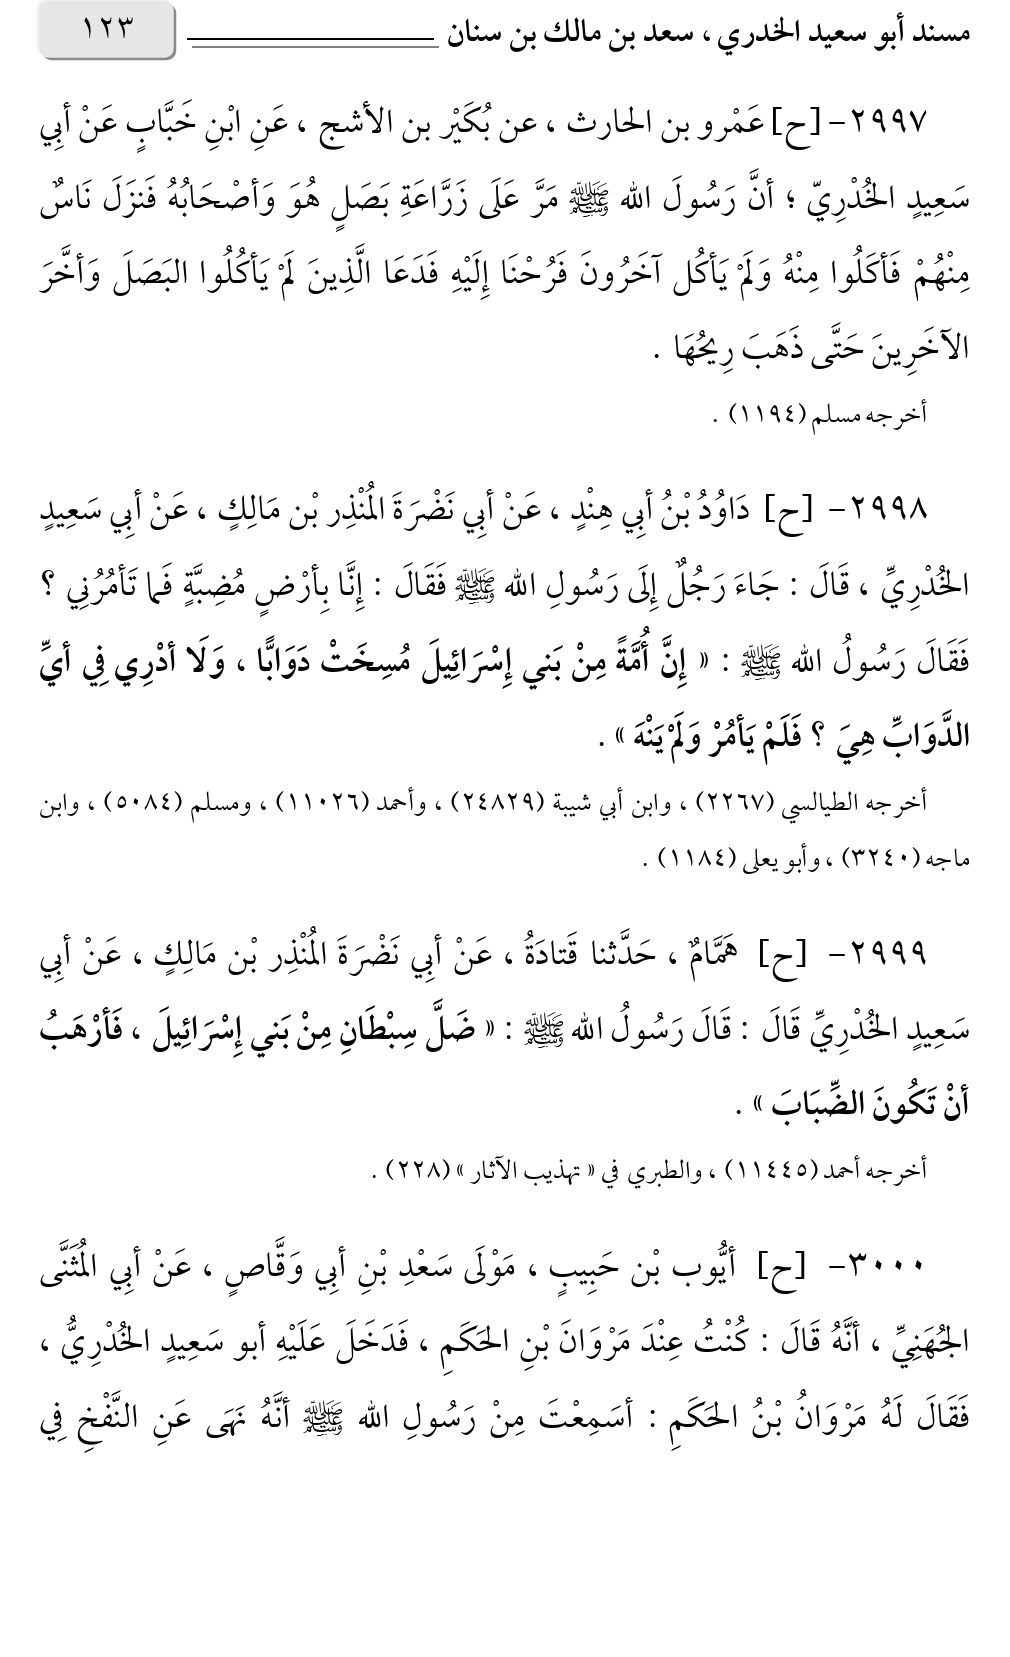 مسند أبو سعيد الخدري ، سعد بن مالك بن سنان ١٢٣
٢٩٩٧- [ح] عَمْرو بن الحارث ، عن بُكَيْر بن الأشج ، عَنِ ابْنِ خَبَّابٍ عَنْ أبِي
سَعِيدٍ الخُدْرِيّ ؛ أنَّ رَسُولَ الله ﷺ مَرَّ عَلَى زَرَّاعَةِ بَصَلٍ هُوَ وَأصْحَابُهُ فَنزَلَ نَاسٌ
مِنْهُمْ فَأكَلُوا مِنْهُ وَلَمْ يَأكُل آخَرُونَ فَرُحْنَا إِلَيْهِ فَدَعَا الَّذِينَ لَمْ يَأكُلُوا البَصَلَ وَأخَّرَ
الآخَرِينَ حَتَّى ذَهَبَ رِيحُهَا .
أخرجه مسلم (١١٩٤) .
٢٩٩٨- [ح] دَاوُدُ بْنُ أبِي هِنْدٍ ، عَنْ أبِي نَضْرَةَ المُنْذِر بْن مَالِكٍ ، عَنْ أبِي سَعِيدٍ
الخُدْرِيِّ ، قَالَ : جَاءَ رَجُلٌ إِلَى رَسُولِ الله ﷺ فَقَالَ : إِنَّا بِأرْضٍ مُضِبَّةٍ فَما تَأمُرُنِي ؟
فَقَالَ رَسُولُ الله ﷺ : « إِنَّ أُمَّةً مِنْ بَني إِسْرَائِيلَ مُسِخَتْ دَوَابًّا ، وَلَا أدْرِي فِي أيِّ
الدَّوَابِّ هِيَ ؟ فَلَمْ يَأمُرْ وَلَمْ يَنْهَ » .
أخرجه الطيالسي (٢٢٦٧) ، وابن أبي شيبة (٢٤٨٢٩) ، وأحمد (١١٠٢٦) ، ومسلم (٥٠٨٤) ، وابن
ماجه (٣٢٤٠) ، وأبو يعلى (١١٨٤) .
٢٩٩٩- [ح] هَمَّامٌ ، حَدَّثنا قَتادَةُ ، عَنْ أبِي نَضْرَةَ المُنْذِر بْن مَالِكٍ ، عَنْ أبِي
سَعِيدٍ الخُدْرِيِّ قَالَ : قَالَ رَسُولُ الله ﷺ : « ضَلَّ سِبْطَانِ مِنْ بَني إِسْرَائِيلَ ، فَأرْهَبُ
أنْ تَكُونَ الضِّبَابَ » .
أخرجه أحمد (١١٤٤٥) ، والطبري في « تهذيب الآثار » (٢٢٨) .
٣٠٠٠- [ح] أيُّوب بْن حَبِيبٍ ، مَوْلَى سَعْدِ بْنِ أبِي وَقَّاصٍ ، عَنْ أبِي المُثَنَّى
الجُهَنِيِّ ، أنَّهُ قَالَ : كُنْتُ عِنْدَ مَرْوَانَ بْنِ الحَكَمِ ، فَدَخَلَ عَلَيْهِ أبو سَعِيدٍ الخُدْرِيُّ ،
فَقَالَ لَهُ مَرْوَانُ بْنُ الحَكَمِ : أسَمِعْتَ مِنْ رَسُولِ الله ﷺ أنَّهُ نَهَى عَنِ النَّفْخِ فِي